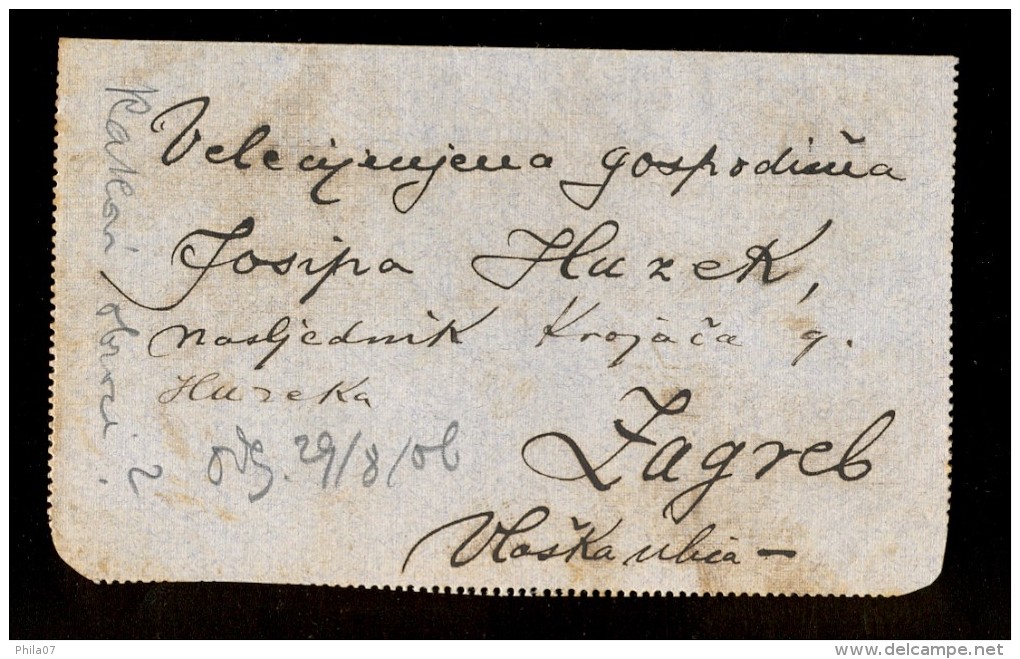 Velecijenjena gospodična
Josipa Huzek,
nasljednik Krojača g.
Huzeka
Zagreb
Vlaška ulica –
odg. 29/8/06
Phila07
www.delcampe.net